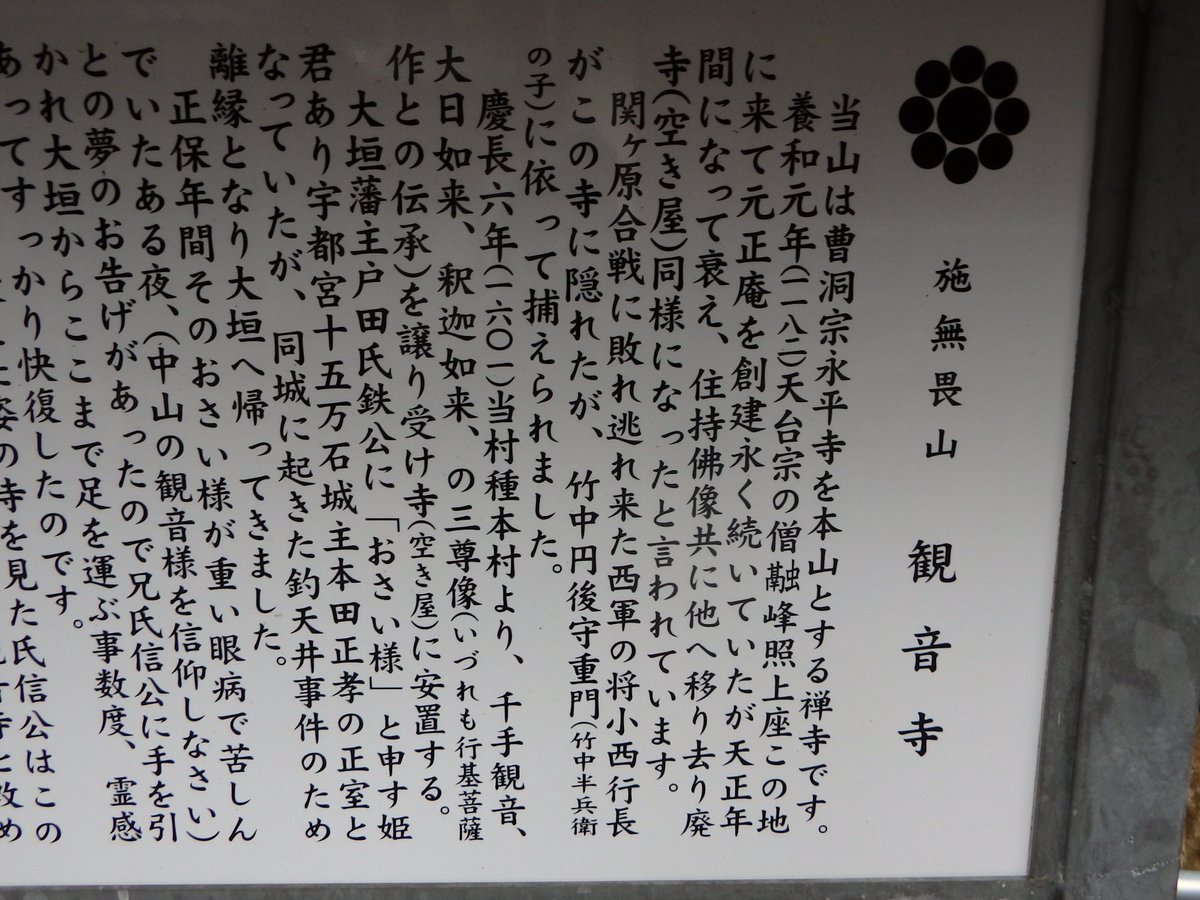 施無畏山 観音寺
当山は曹洞宗永平寺を本山とする禅寺です。
養和元年(一一八一)天台宗の僧融峰照上座この地
に来て元正庵を創建永く続いていたが天正年
間になって衰え、住持佛像共に他へ移り去り廃
寺(空き屋)同様になったと言われています。
関ヶ原合戦に敗れ逃れ来た西軍の将小西行長
がこの寺に隠れたが、竹中円後守重門(竹中半兵衛
の子)に依って捕えられました。
慶長六年(一六〇一)当村種本村より、千手観音、
大日如来、釈迦如来、の三尊像(いづれも行基菩薩
作との伝承)を譲り受け寺(空き屋)に安置する。
大垣藩主戸田氏鉄公に「おさい様」と申す姫
君あり宇都宮十五万石城主本田正孝の正室と
なっていたが、同城に起きた釣天井事件のため
離縁となり大垣へ帰ってきました。
正保年間そのおさい様が重い眼病で苦しん
でいたある夜、(中山の観音様を信仰しなさい)
との夢のお告げがあったので兄氏信公に手を引
かれ大垣からここまで足を運ぶ事数度、霊感
あってすっかり快復したのです。
姿の寺を見た氏信公はこの
寺と改め